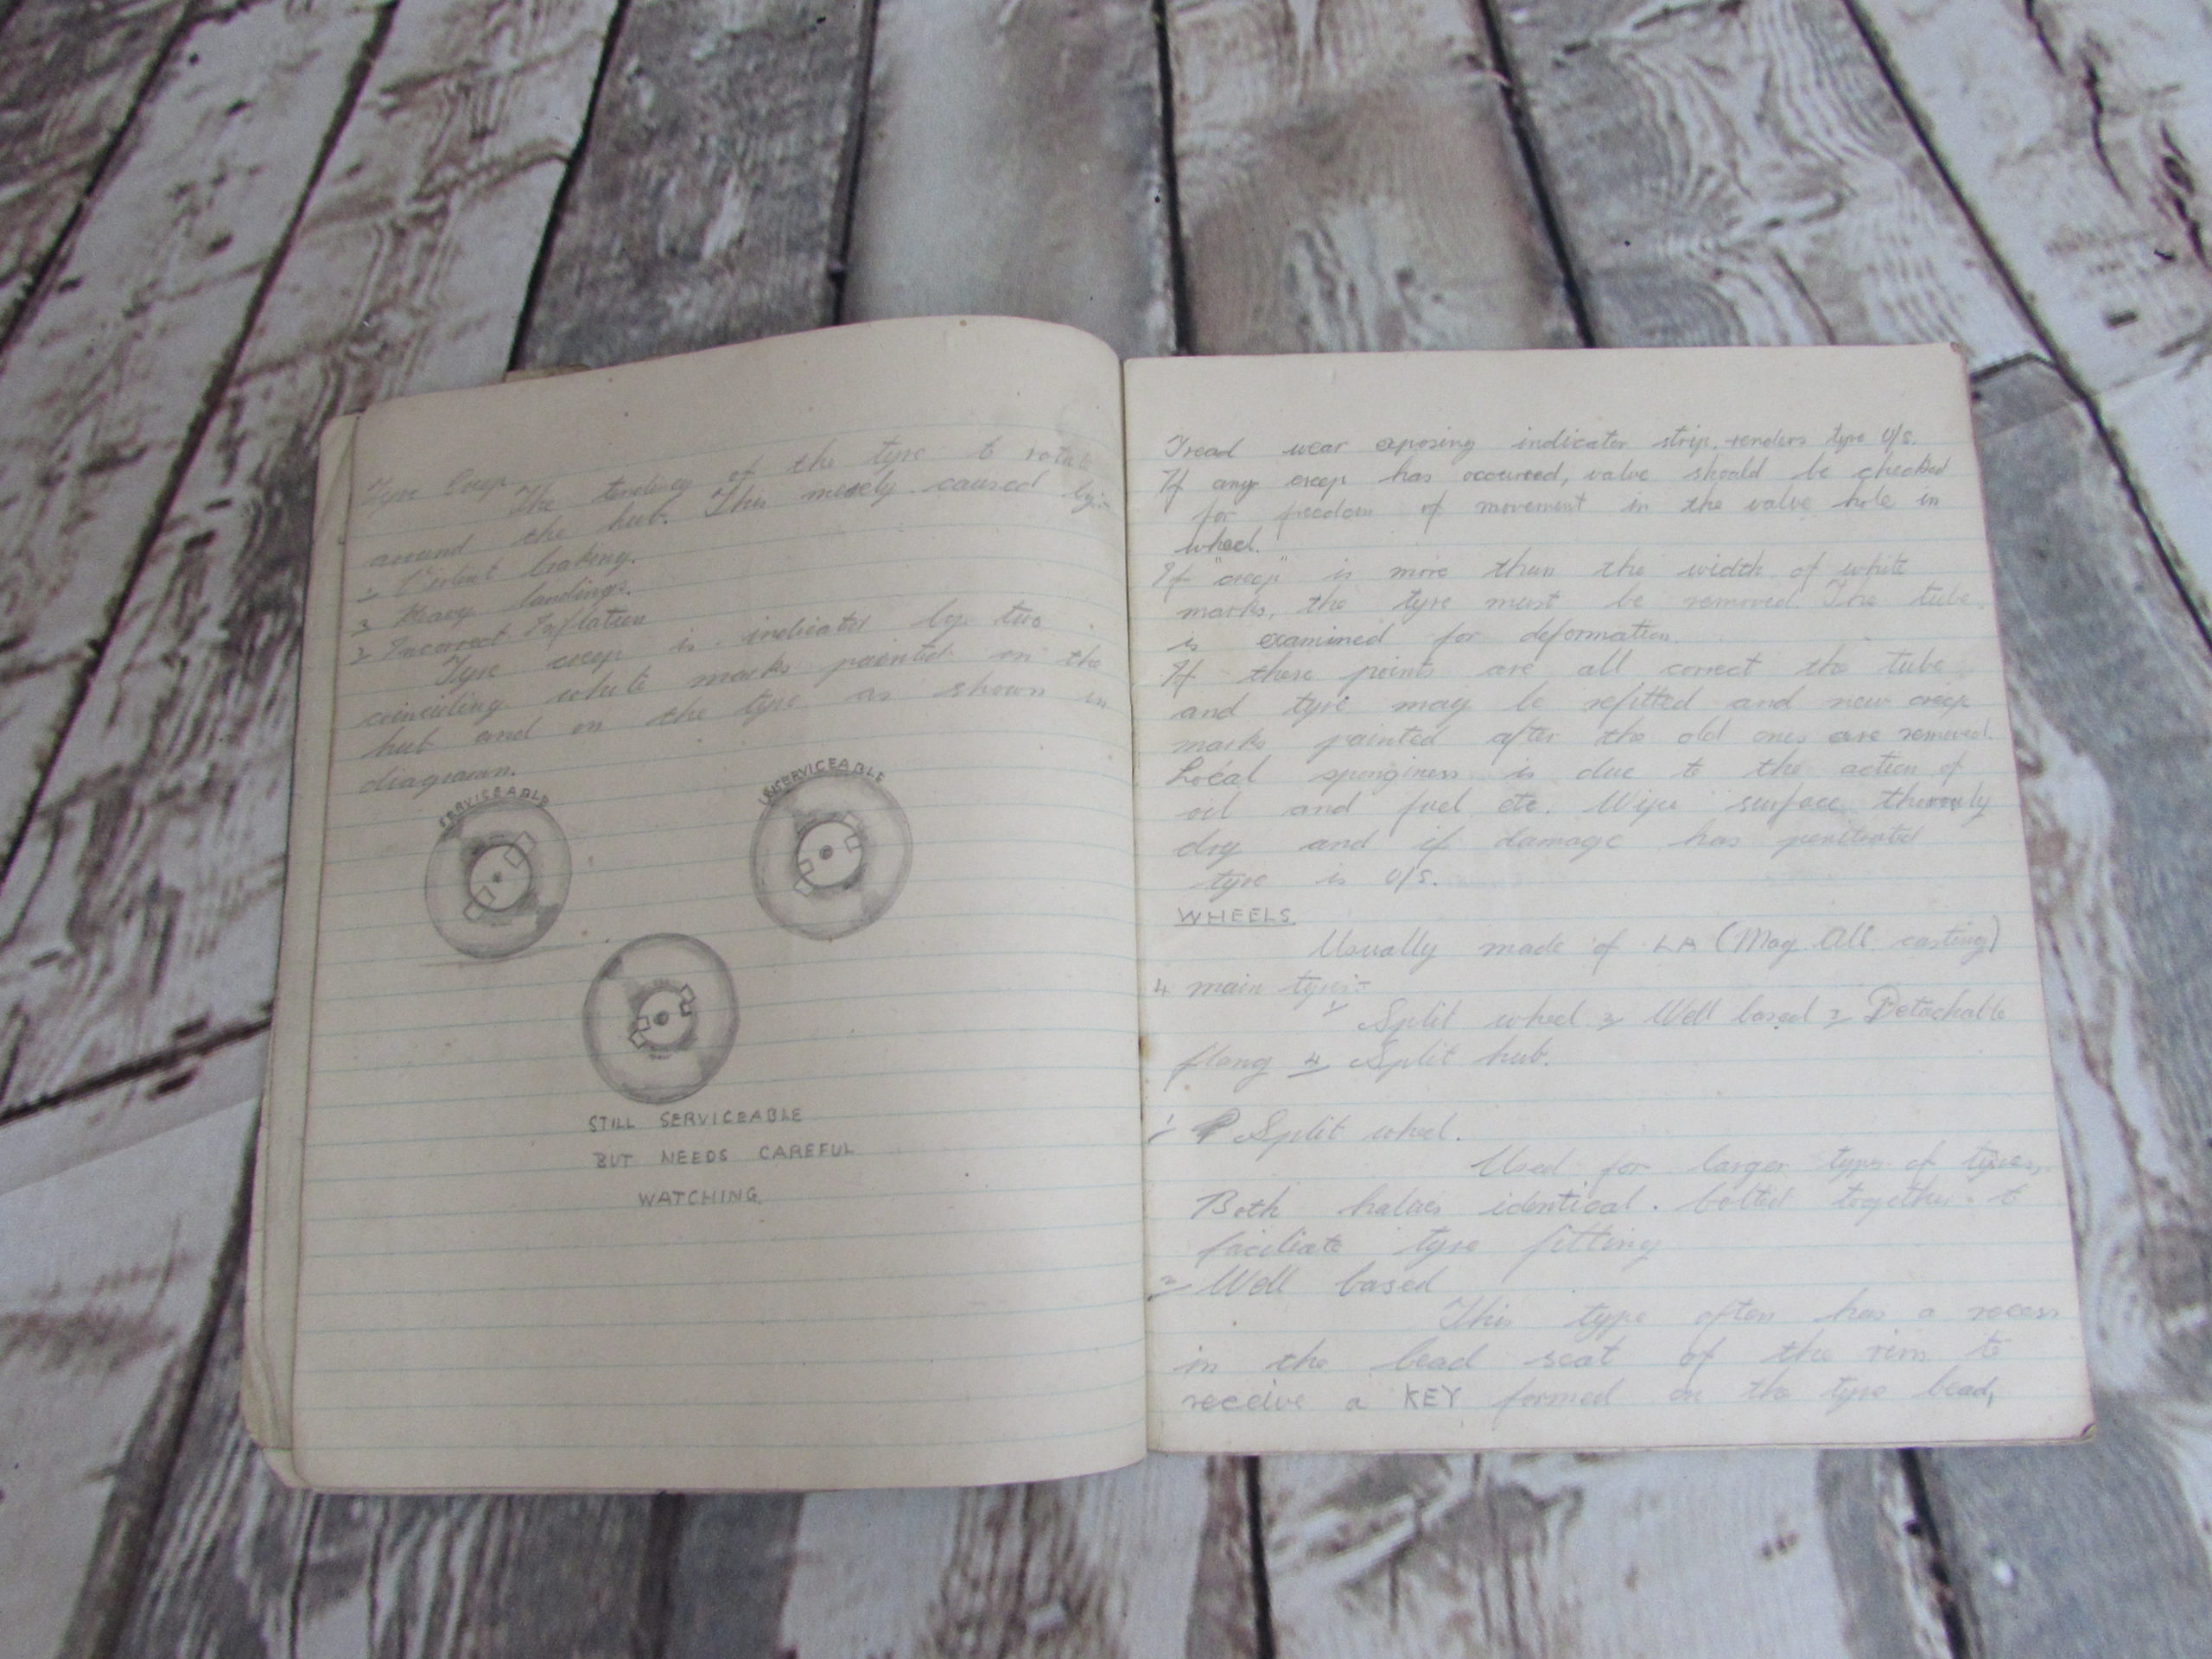 Tyre Creep
The tendency of the tyre to rotate
around the hub. This merely caused by:-
1 Violent braking.
2 Heavy landings.
3 Incorrect Inflation
Tyre creep is indicated by two
coinciding white marks painted on the
hub and on the tyre as shown in
diagramn.
SERVISEABLE
UNSERVICEABLE
STILL SERVICEABLE
BUT NEEDS CAREFUL
WATCHING.
Tread wear exposing indicator strip renders tyre U/S.
If any creep has occurred, valve should be checked
for freedom of movement in the valve hole in
wheel.
If "creep" is more than the width of white
marks, the tyre must be removed. The tube
is examined for deformation.
If these points are all correct the tube
and tyre may be refitted and new creep
marks painted after the old ones are removed.
Local sponginess is due to the action of
oil and fuel etc. Wipe surface
dry and if damage has penitrated
tyre is U/S.
WHEELS.
Usually made of LA (Mag All casting)
4 main types:-
1 Split wheel 2 Well based 3 Detachable
flang 4 Split hub.
1 Split wheel.
Used for larger types of tyres,
Both halves identical. bolted together to
faciliate tyre fitting
2 Well based
This type often has a recess
in the bead seat of the rim to
receive a KEY formed on the tyre bead,